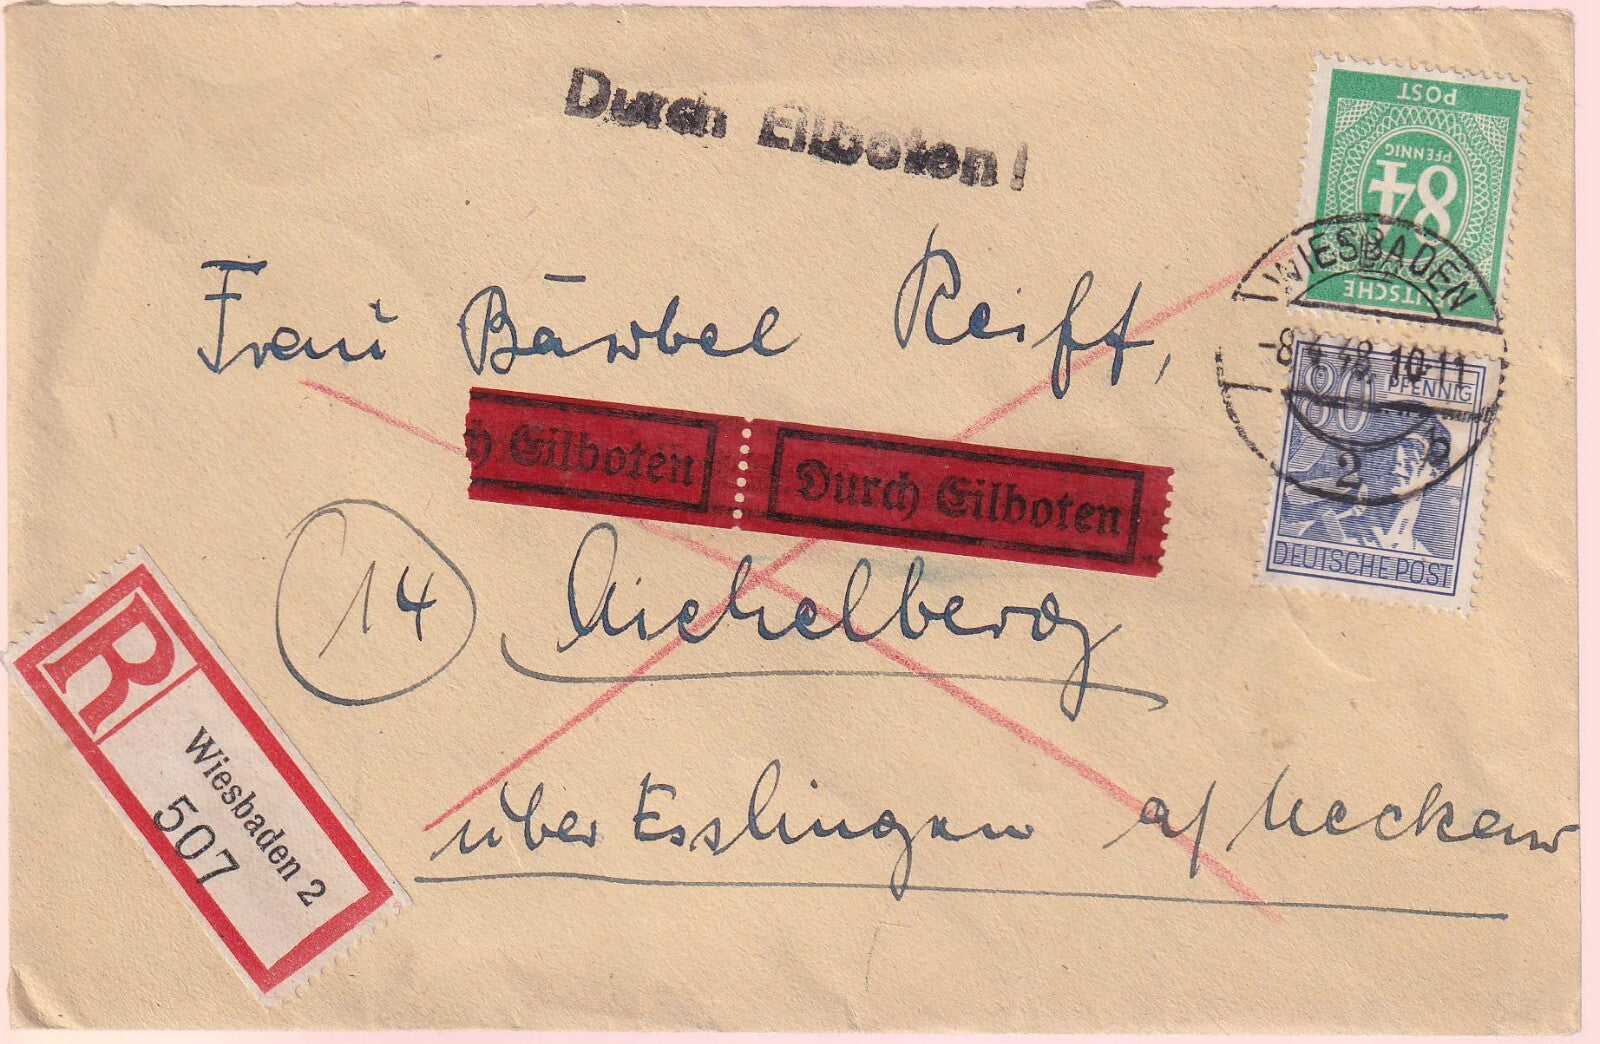 Durch Eilboten!
DEUTSCHE
84
PFENNIG
POST
WIESBADEN
-8.4.48. 10-11
2 b
80
80
PFENNIG
DEUTSCHE POST
Frau Bärbel Reiff,
h Eilboten
Durch Eilboten
14 Aichelberg
über Esslingen a/Neckar
R
Wiesbaden 2
507